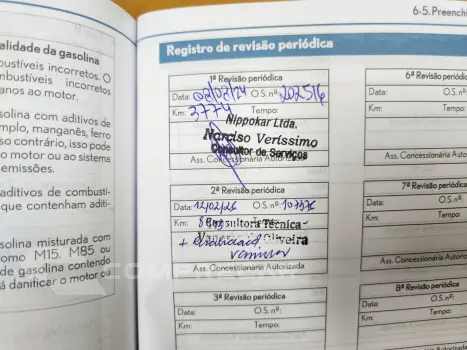 6-5. Preenchi
alidade da gasolina
bustíveis incorretos. O
mbustíveis incorretos
anos ao motor.
solina com aditivos de
mplo, manganês, ferro
so contrário, isso pode
o motor ou ao sistema
emissões.
aditivos de combustí-
que contenham aditi-
solina misturada com
omo M15, M85 ou
de gasolina contendo
á danificar o motor ou
Registro de revisão periódica
1ª Revisão periódica
Data: 02/02/24 O.S. nº: 202516
Km: 3774 Tempo:
Nippokar Ltda.
Narciso Veríssimo
Consultor de Serviços
Ass. Concessionária Autorizada
2ª Revisão periódica
Data: 12/02/26 O.S. nº: 107376
Km: Tempo:
Consultora Técnica
Oliveira
Ass. Concessionária Autorizada
3ª Revisão periódica
Data: O.S. nº:
Km: Tempo:
6ª Revisão periódi
Data: O.S.
Km: Temp
Ass. Concessionária Au
7ª Revisão periódi
Data: O.S.
Km: Tem
Ass. Concessionária A
8ª Revisão per
Data:
Km:
Ass. Concessionári